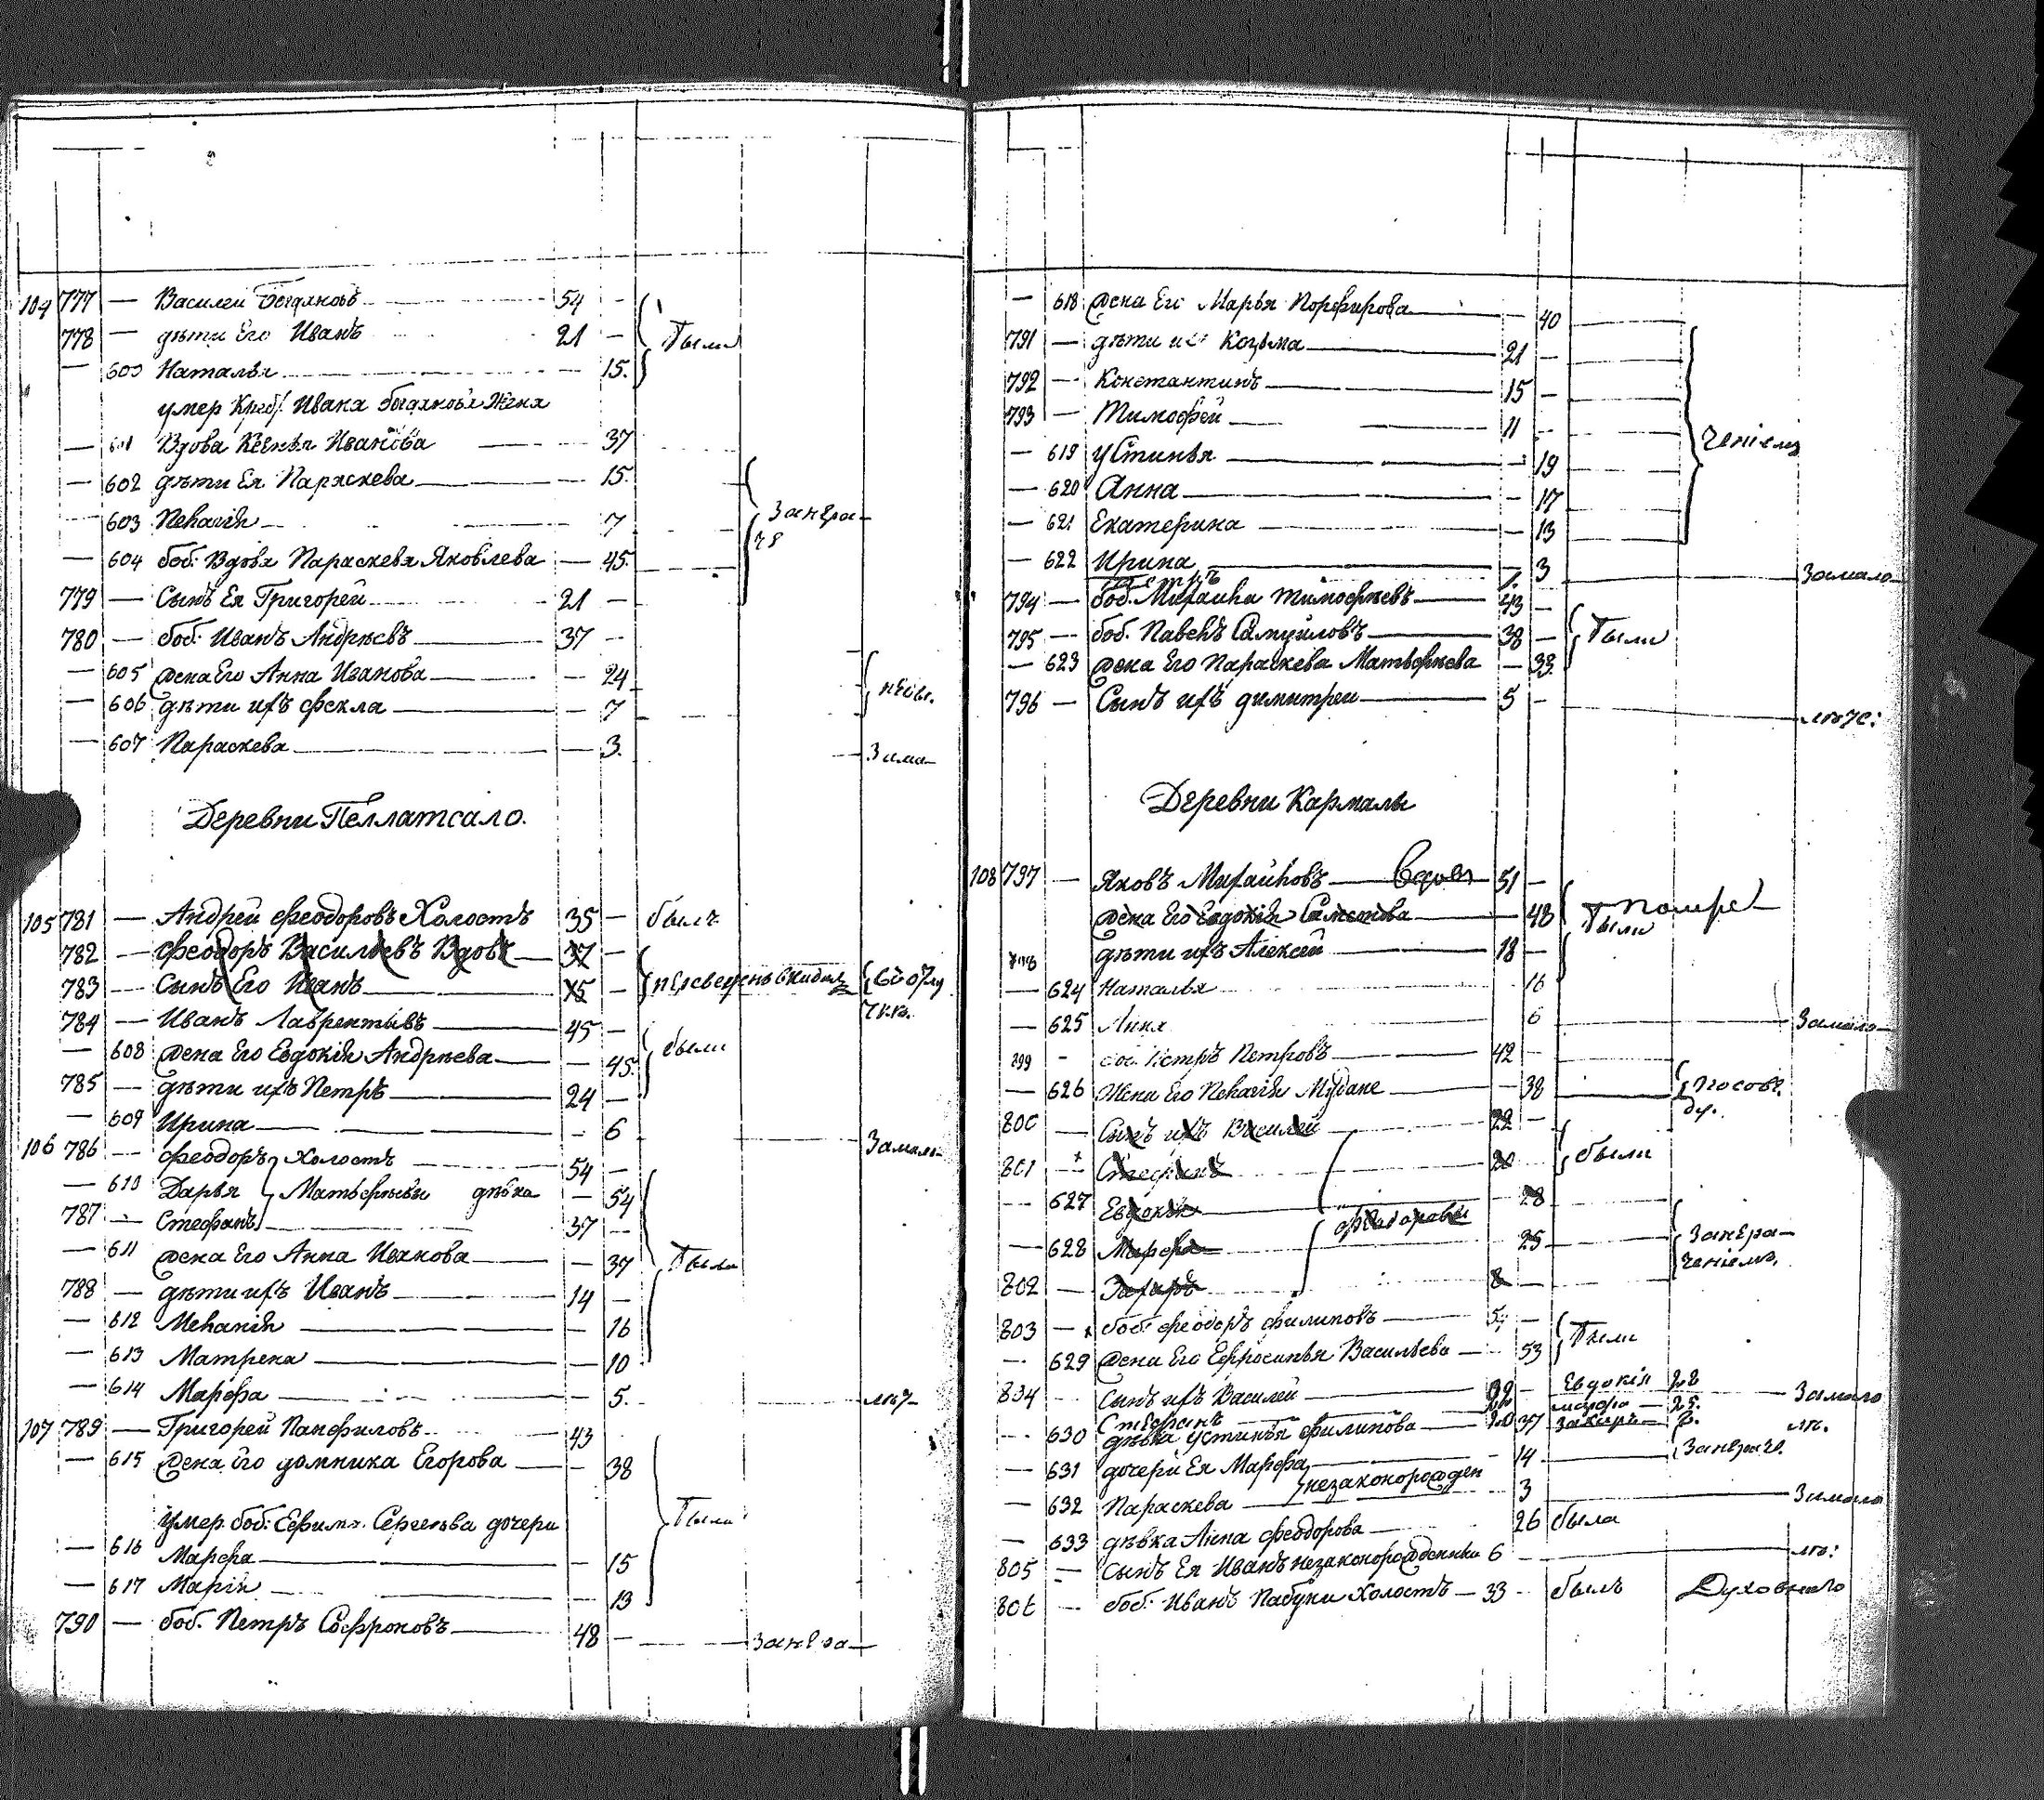 104 777 — Василей Богдановъ 54 —
778 — дѣти Его Иванъ 21 — были
— 600 Наталья — 15.
умер Крест. Ивана богданова Жена
— 601 Вдова Ксенья Иванова 37
— 602 дѣти Ея Параскева — 15.
— 603 Пелагія 7 Занера
— 604 боб: Вдова Параскева Яковлева — 45.
779 — Сынъ Ея Григорей 21 —
780 — боб: Иванъ Андрѣевъ 37 —
— 605 жена Его Анна Иванова — 24
— 606 дѣти ихъ фекла — 7
— 607 Параскева — 3.
Деревни Пеллатсало.
105 781 — Андрей феодоровъ Холостъ 35 — былъ
782 — феодоръ Васильевъ Вдовъ 37
783 — Сынъ Его Иванъ 15 —
784 — Иванъ Лаврентьевъ 45 —
— 608 жена Его Евдокія Андрѣева — 45. были
785 — дѣти ихъ Петръ 24 —
— 609 Ирина — 6 Замало
106 786 — феодоръ Холостъ 54 —
— 610 Дарья Матвѣевы дѣвка — 54
787 — Стефанъ 37 —
— 611 жена Его Анна Иванова — 37 были
788 — дѣти ихъ Иванъ 14 —
— 612 Меланія — 16
— 613 Матрена — 10
— 614 Марфа — 5.
107 789 — Григорей Панфиловъ 43
— 615 жена Его домника Егорова — 38
умер. боб: Ефима Сергеева дочери были
— 616 Марфа — 15
— 617 Марія — 13
790 — боб. Петръ Софроновъ 48 — занера
— 618 жена Его Марья Порфирова 40
791 — дѣти ихъ Козьма 21 —
792 — Константинъ 15 —
793 — Тимофей 11 —
— 619 Устинья — 19 ченіемъ
— 620 Анна — 17
— 621 Екатерина — 13
— 622 Ирина — 3 Замало
794 — боб. Михаила Тимофеевъ 43 —
795 — боб. Павелъ Самуиловъ 38 — были
— 623 жена Его Параскева Матвѣева — 33.
796 — Сынъ ихъ димитреи 5 —
Деревни Кармалы
108 797 — Яковъ Михайловъ вдовъ 51 —
жена Его Евдокія — 48 были помре
дѣти ихъ Алексей 18 —
— 624 Наталья 16
— 625 Анна 6 Замало
799 — боб. Петръ Петровъ 42 —
— 626 Жена Его Пелагія — 38
800 — Сынъ ихъ Василей 22 —
801 — Стефанъ 20 были
— 627 Евдокія 28
феодоровы
— 628 Марфа 25 Занера
802 — Захаръ 8 — ченіемъ.
803 — боб: феодоръ филиповъ —
— 629 жена Его Ефросинья Васильева — 53 были
804 — Сынъ ихъ Василей — Евдокія 28 Замало
Стефанъ 20 марфа — 25.
— 630 дѣвка Устинья филипова 37 захаръ — 8. лѣ.
— 631 дочери Ея Марфа — 14
незаконорожден
— 632 Параскева 3 Замало
— 633 дѣвка Анна феодорова 26 была
805 — Сынъ Ея Иванъ незаконорожденны 6 лѣ:
806 — боб: Иванъ Холостъ — 33 — былъ Духовнаго